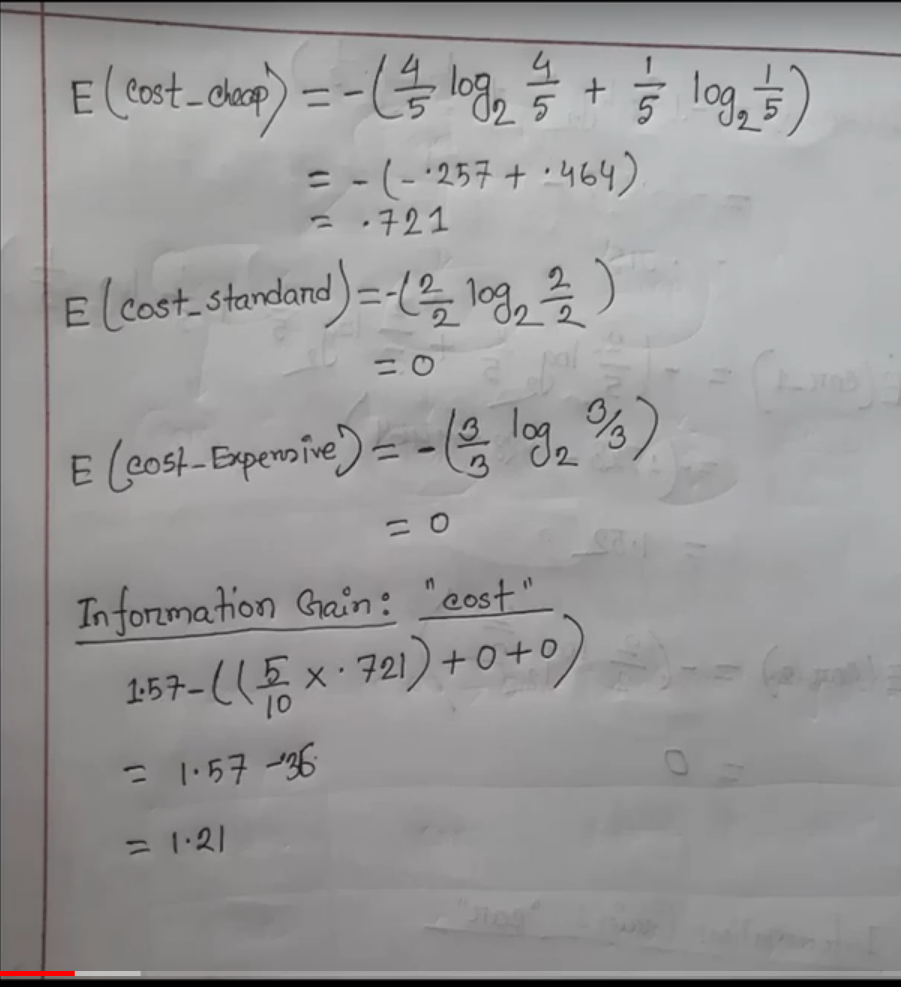 E (cost_cheap) = -(4/5 log₂ 4/5 + 1/5 log₂ 1/5)
= -(-.257 + .464)
= .721
E (cost_standard) = -(2/2 log₂ 2/2)
= 0
E (cost-Expensive) = -(3/3 log₂ 3/3)
= 0
Information Gain: "cost"
1.57-((5/10 × .721) + 0 + 0)
= 1.57 -.36
= 1.21